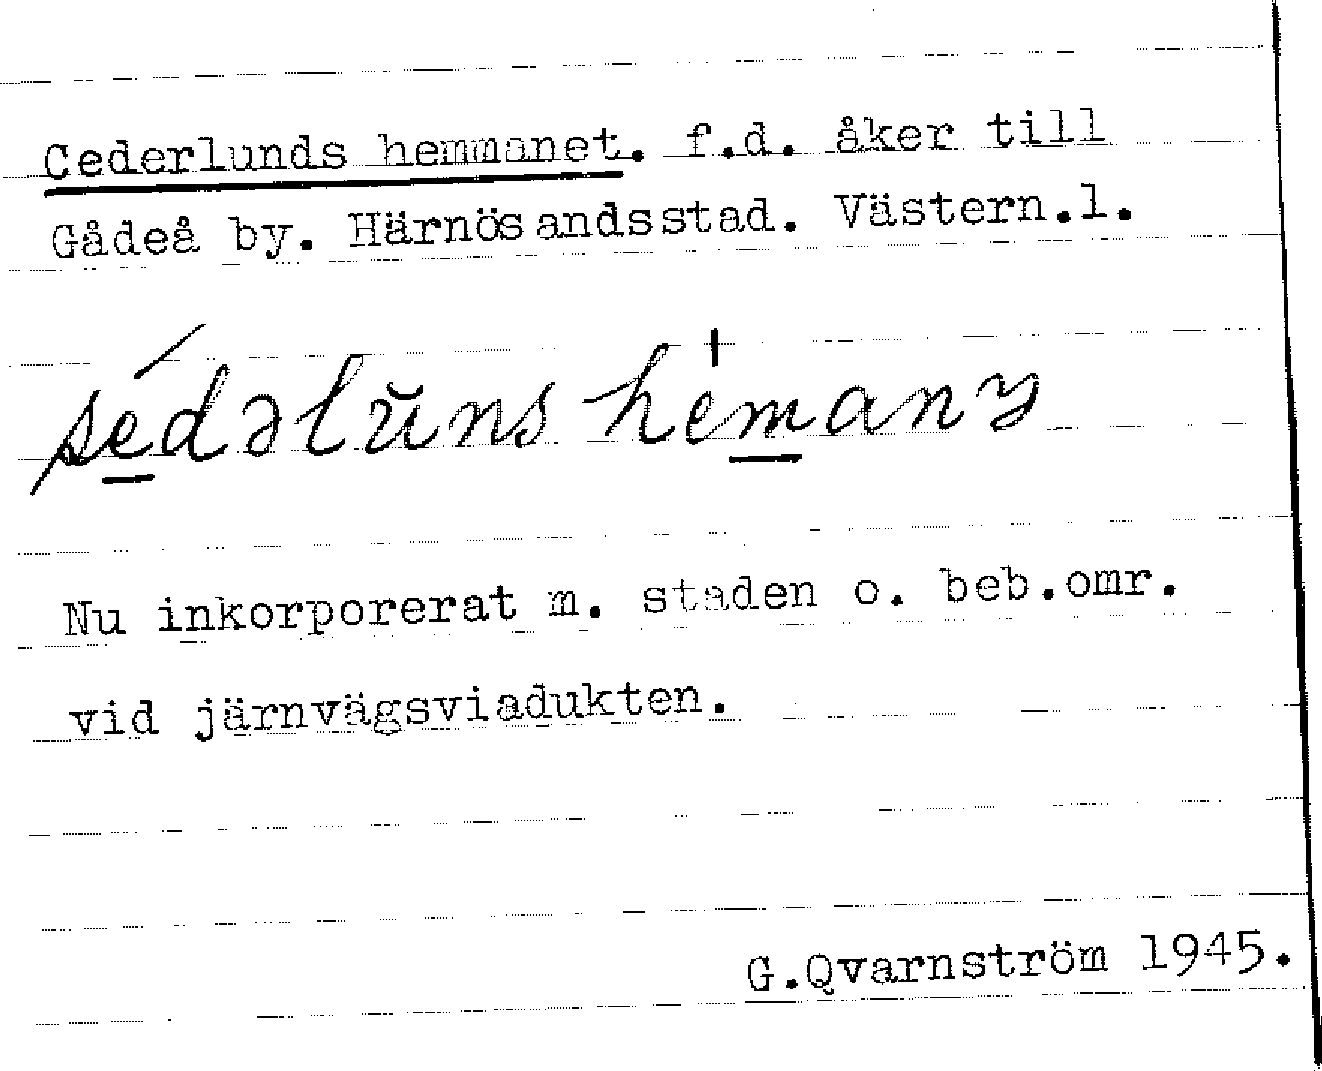 Cederlunds hemmanet. f.d. åker till
Gådeå by. Härnösandsstad. Västern.l.
sédəlŭns hemany
Nu inkorporerat m. staden o. beb.omr.
vid järnvägsviadukten.
G.Qvarnström 1945.